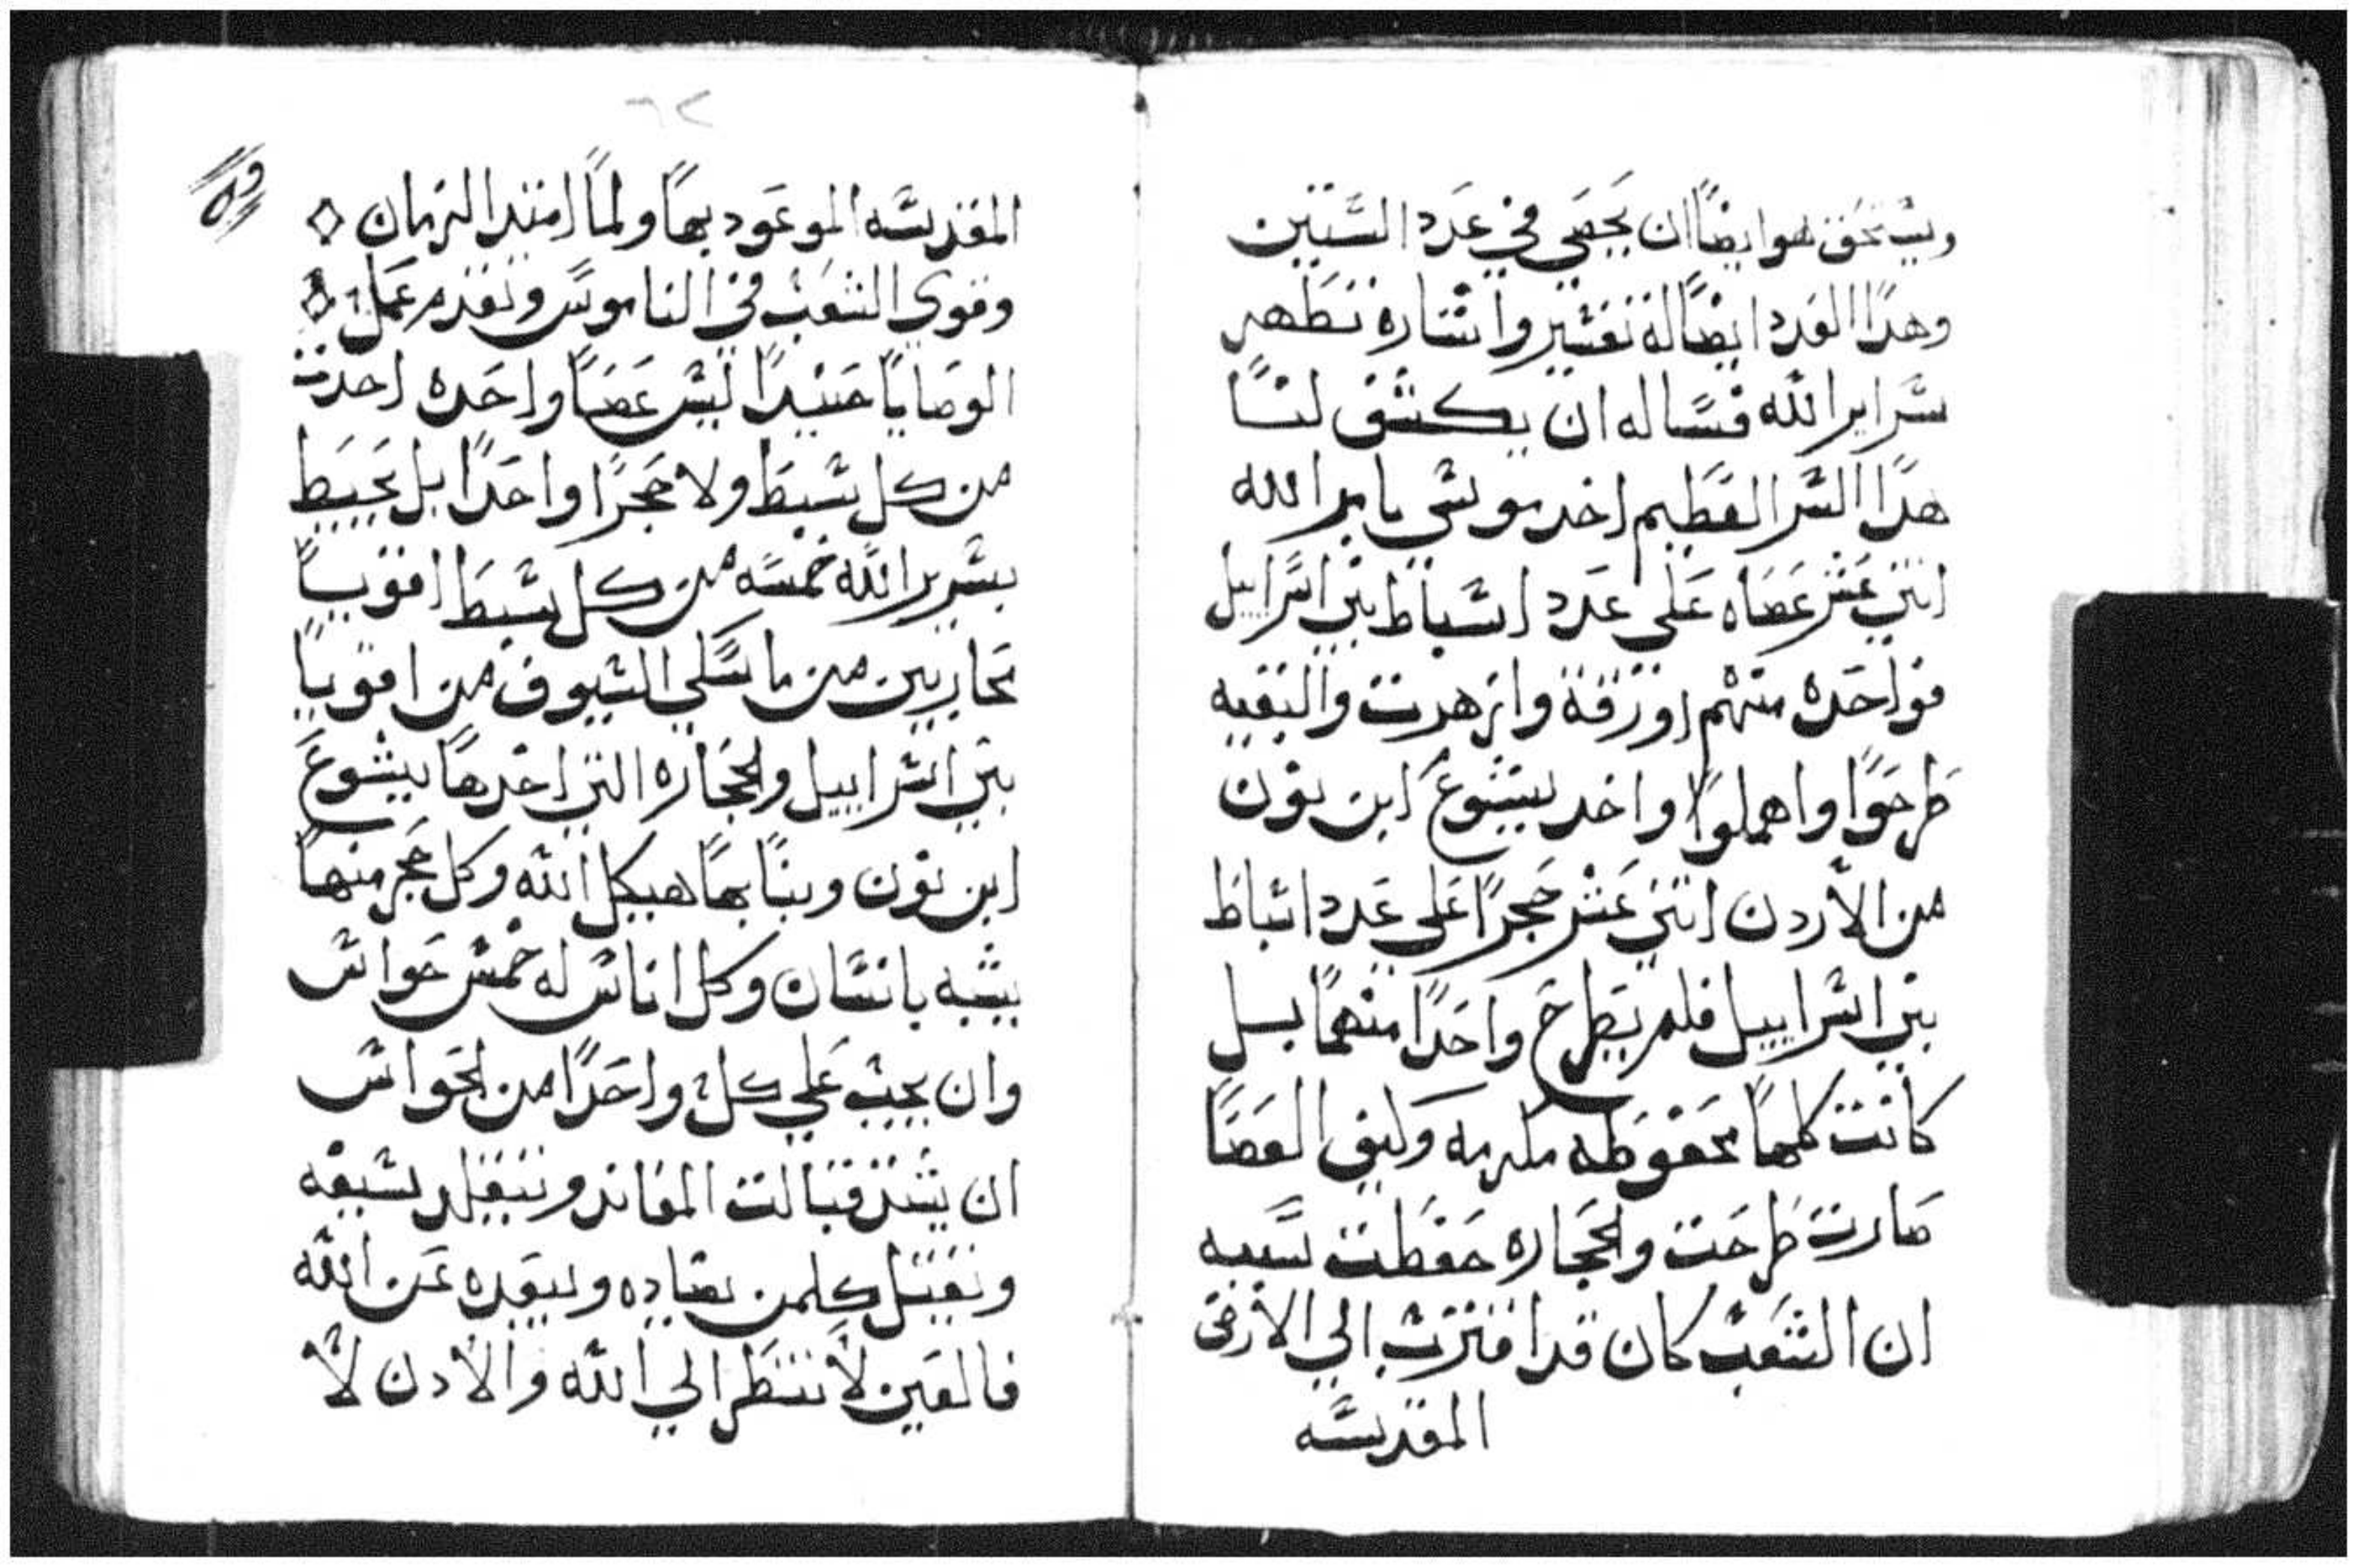 ويستحق هو ايضاً ان يحصي في عدد السنين
وهدا العدد ايضاً له تفسير واشاره تظهر
سراير الله فنساله ان يكشف لنا
هدا السر العظيم اخد موسي بامر الله
اتني عشر عصاه علي عدد اسباط بني اسراييل
فواحده منهم اورقة وازهرت والبقيه
طرحوا واهملوا واخد يشوع ابن نون
من الاردن اتني عشر حجراً علي عدد اسباط
بني اسراييل فلم يطرح واحداً منهما بل
كانت كلها محفوظه مكرمه وكيف العصا
صارت طرحت والحجاره حفظت سببه
ان الشعب كان قد اقترب الي الارض
المقدسه
٦٢
المقدسه الموعود بها ولما امتد الزمان
وقوي الشعب في الناموس وتقدم عمل
الوصايا حينيداً ليس عصا واحده اخدت
من كل سبط ولا حجراً واحداً بل بحيط
بسرير الله خمسه من كل سبط اقويا
محاربين من ماسكي السيوف من اقويا
بني اسراييل والحجاره التي اخدها يشوع
ابن نون وبنا بها هيكل الله وكل حجر منها
يشبه بانسان وكل اناس له خمس حواس
وان يجب علي كل واحداً من الحواس
ان قبالت المعاند سيفه
ويقتل كلمن يضاده ويبعده عن الله
فالعين لا تنظر الي الله والادن لا